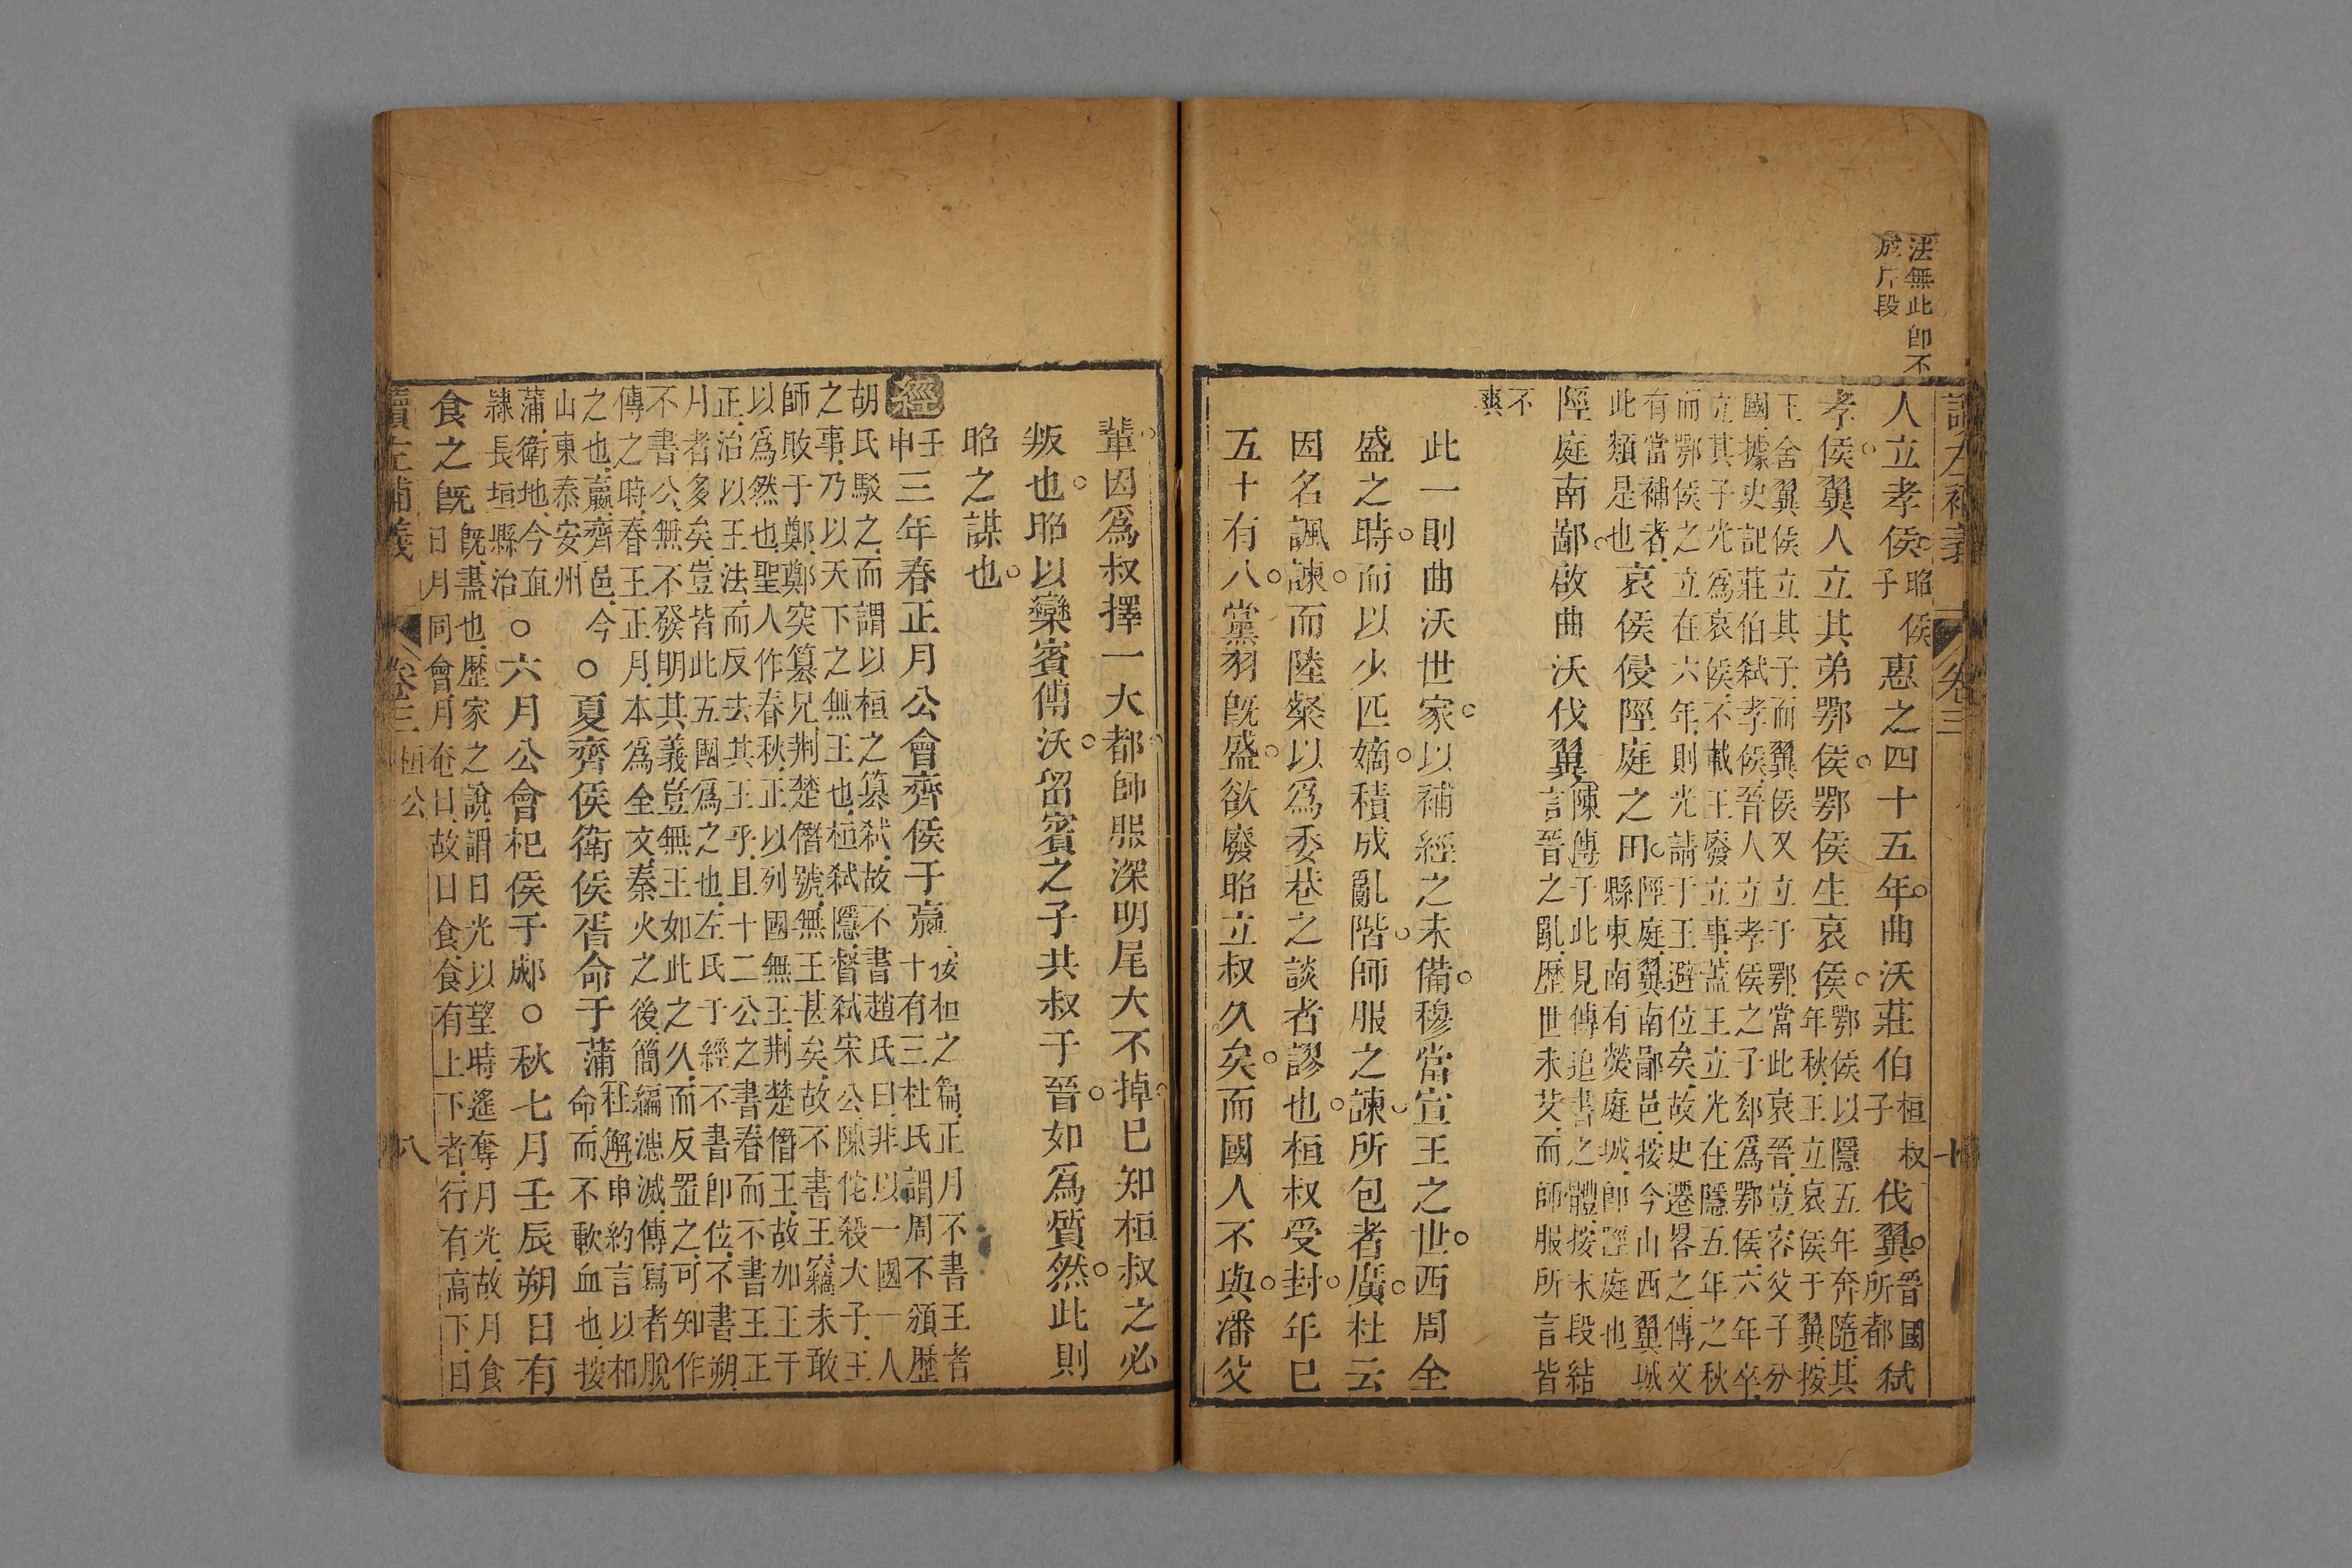 法無此卽不
成片段
讀左補義 卷三
人立孝侯昭侯子惠之四十五年曲沃莊伯桓叔子伐翼晉國所都弑
孝侯翼人立其弟鄂侯鄂侯生哀侯鄂侯以隱五年奔隨其
年秋王立哀侯于翼按
王舍翼侯立其子而翼侯又立于鄂當此哀晉豈容父子分
國據史記莊伯弑孝侯晉人立孝侯之子郄爲鄂侯六年卒
立其子光爲哀侯不載王廢立事蓋王立光在隱五年之秋
而鄂侯之立在六年則光請于王避位矣故史遷畧之傳文
有當補者
此類是也哀侯侵陘庭之田陘庭翼南鄙邑按今山西翼城
縣東南有熒庭城卽陘庭也
陘庭南鄙啟曲沃伐翼陳傅于此見傳追書之體按末段結
言晉之亂歷世未艾而師服所言皆
不
爽
此一則曲沃世家以補經之未備穆當宣王之世西周全
盛之時而以少匹嫡積成亂階師服之諫所包者廣杜云
因名諷諫而陸粲以爲委巷之談者謬也桓叔受封年巳
五十有八黨羽旣盛欲廢昭立叔久矣而國人不與潘父
輩因爲叔擇一大都師服深明尾大不掉巳知桓叔之必
叛也昭以欒賓傅沃留賓之子共叔于晉如爲質然此則
昭之謀也
經壬申三年春正月公會齊侯于嬴按桓之篇正月不書王者
十有三杜氏謂周不頒歷
胡氏駁之而謂以桓之簒弑故不書趙氏曰非以一國一人
之事乃以天下之無王也桓弑隱督弑宋公陳佗殺大子王
師敗于鄭鄭突簒兄荆楚僭號無王甚矣故不書王竊未敢
以爲然也聖人作春秋正以列國無王荆楚僭王故加王于
正治以王法而反去其王乎且十二公之書春而不書王正
月者多矣豈皆此五國爲之也左氏于經不書卽位不書朔
不書公無不發明其義豈無王如此之久而反置之可知作
傳之時春王正月本爲全文秦火之後簡編漶滅傳寫者脫
之也嬴齊邑今
山東泰安州○夏齊侯衛侯胥命于蒲杜解申約言以相
命而不歃血也按
蒲衛地今直
隷長垣縣治○六月公會杞侯于郕○秋七月壬辰朔日有
食之旣旣盡也歷家之說謂日光以望時遙奪月光故月食
日月同會月奄日故日食食有上下者行有高下日
讀左補義 卷三 桓公 八